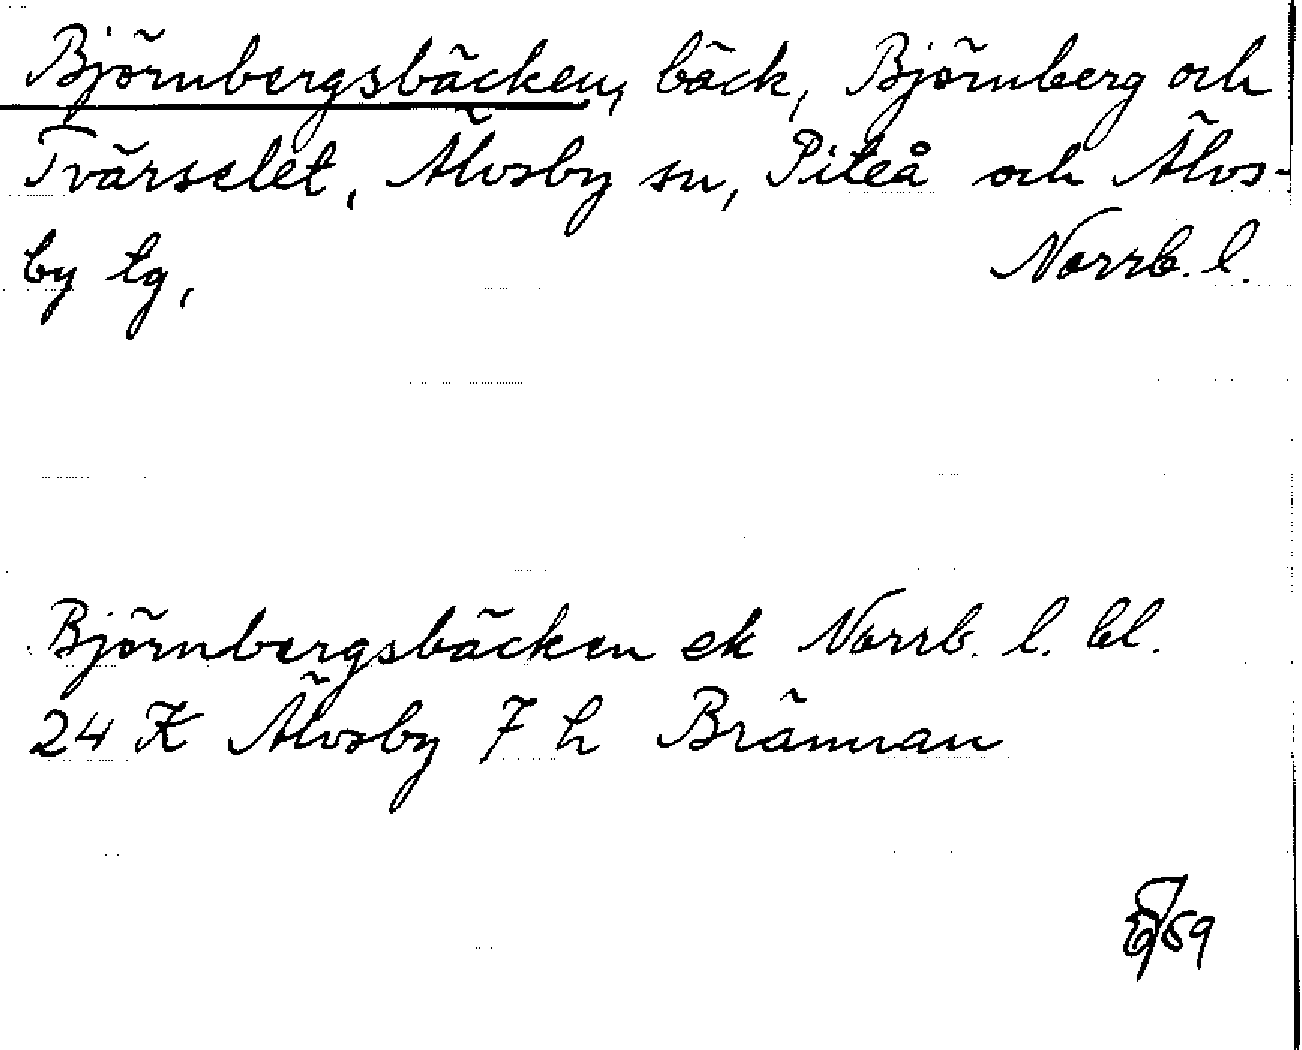 Björnbergsbäcken, bäck, Björnberg och
Tvärselet, Älvsby sn, Piteå och Älvs-
by tg, Norrb. l.
Björnbergsbäcken ek Norrb. l. bl.
24 K Älvsby 7 h Brännan
/69